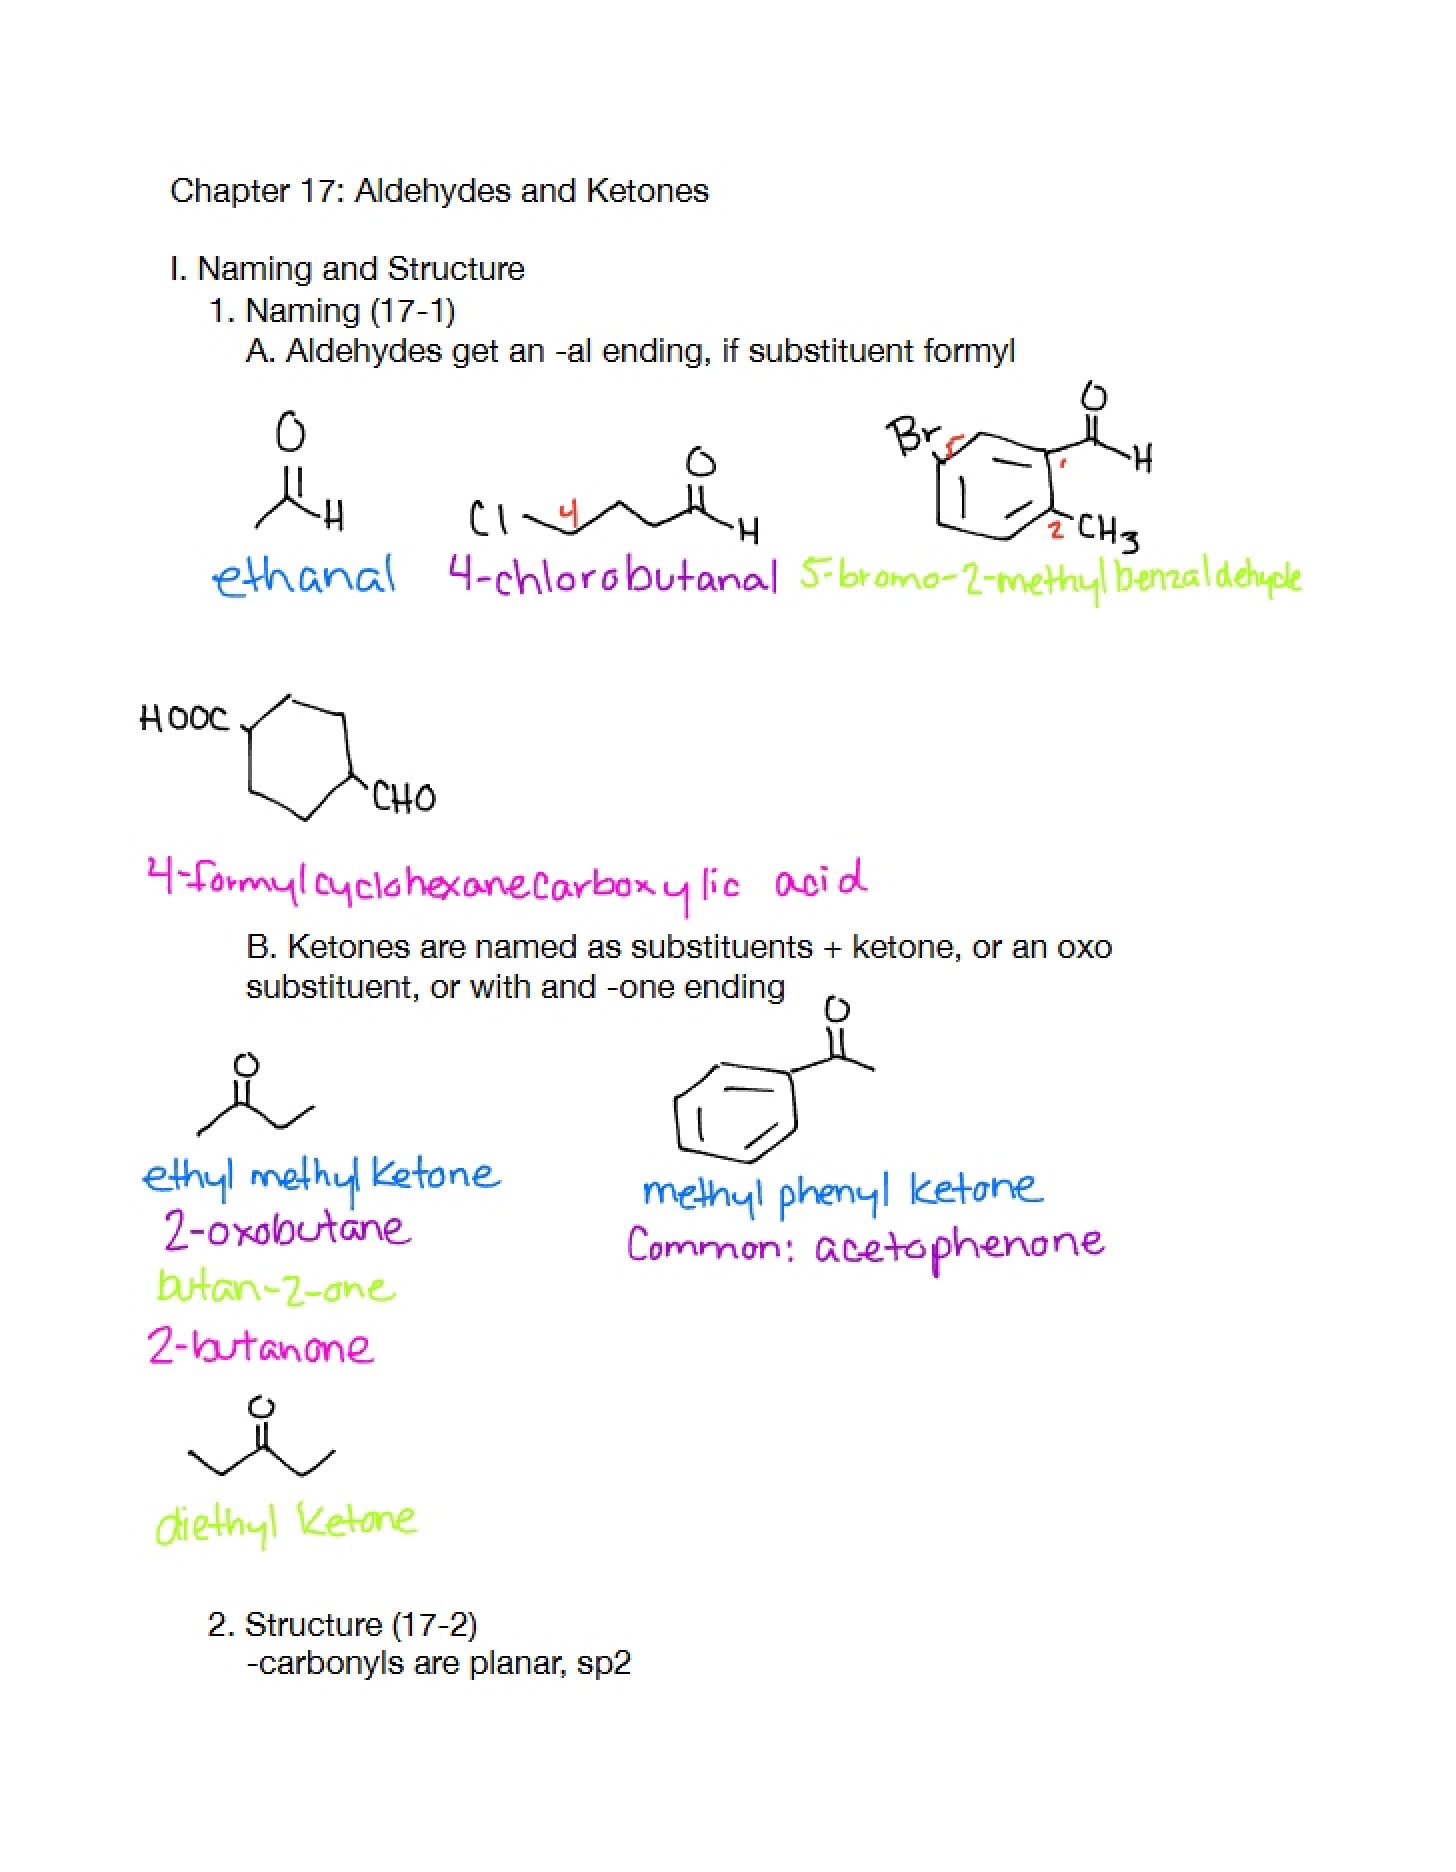 Chapter 17: Aldehydes and Ketones
I. Naming and Structure
1. Naming (17-1)
A. Aldehydes get an -al ending, if substituent formyl
O
H
ethanal
Cl 4 O
H
4-chlorobutanal
Br 5 O
1 H
2 CH3
5-bromo-2-methylbenzaldehyde
HOOC
CHO
4-formylcyclohexanecarboxylic acid
B. Ketones are named as substituents + ketone, or an oxo
substituent, or with and -one ending
O
ethyl methyl ketone
2-oxobutane
butan-2-one
2-butanone
O
methyl phenyl ketone
Common: acetophenone
O
diethyl ketone
2. Structure (17-2)
-carbonyls are planar, sp2